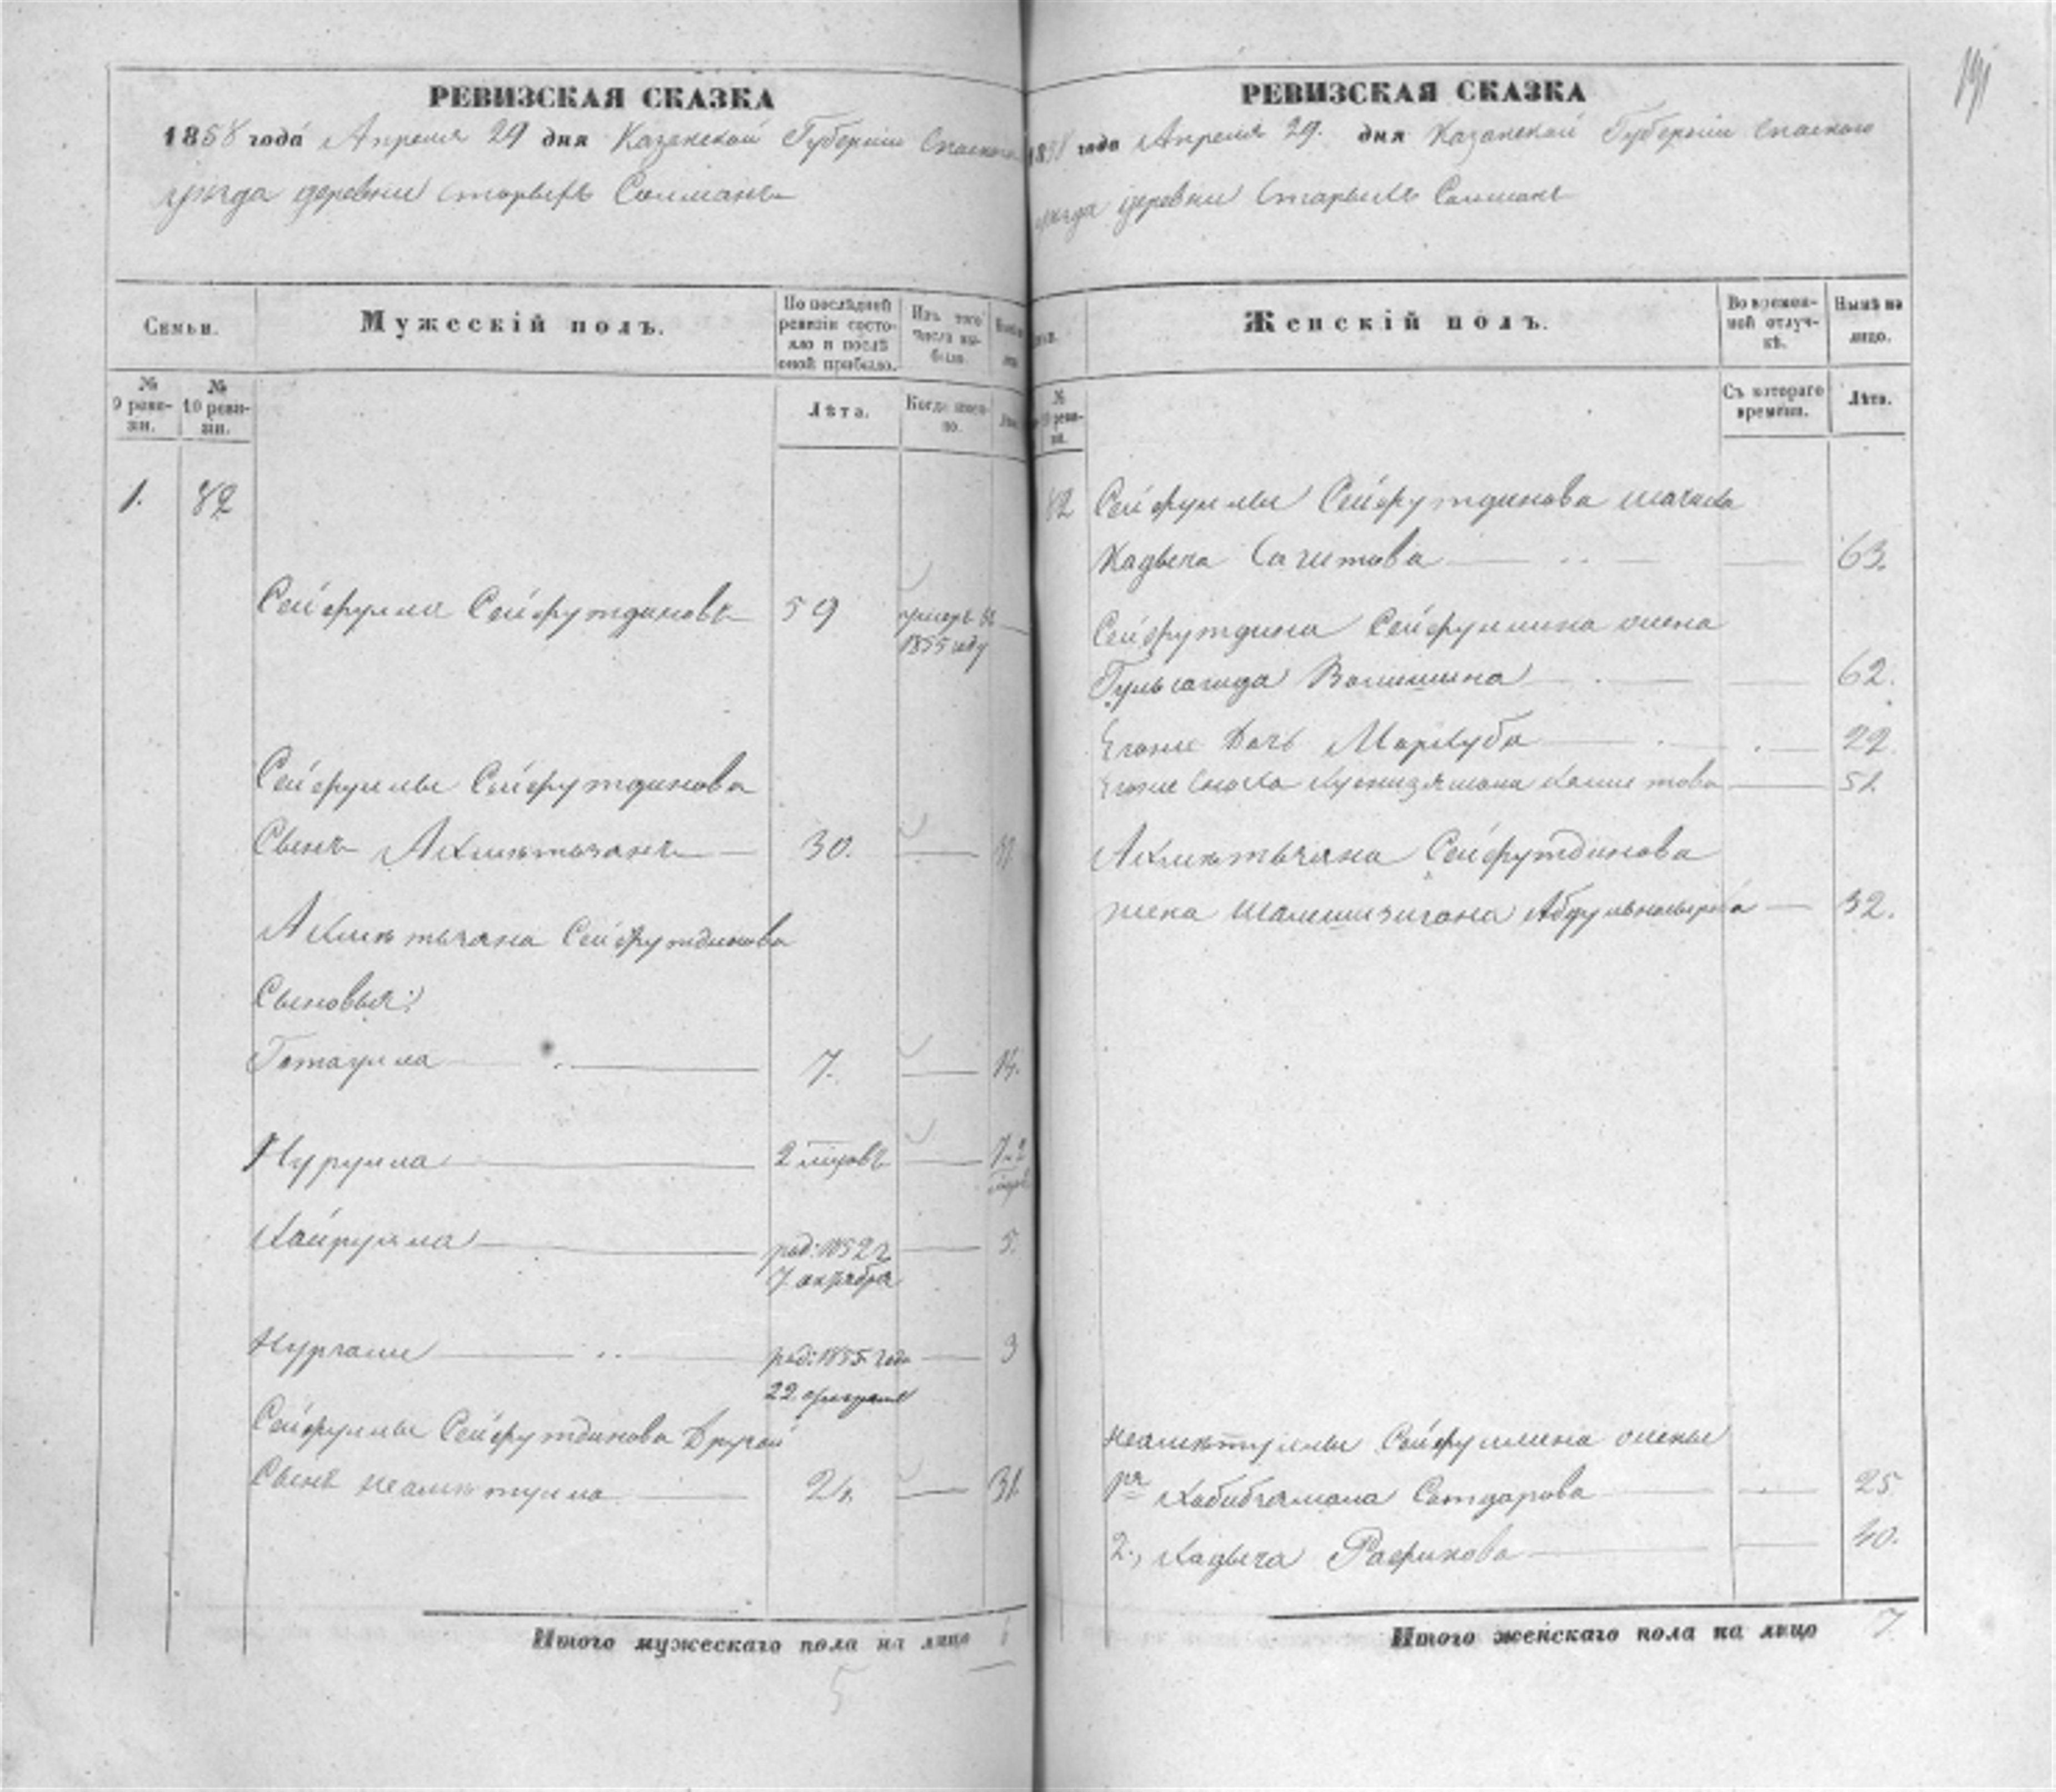 191
РЕВИЗСКАЯ СКАЗКА
1858 года Апреля 29 дня Казанской Губернии Спаского
уезда деревни Старыхъ Салманъ
Семьи.
Мужескій полъ.
По послѣдней ревизіи состояло и послѣ оной прибыло.
Изъ того числа выбыло.
№ 9 ревизіи.
№ 10 ревизіи.
Лѣта.
Когда именно.
1. 82
Сейфулла Сейфутдиновъ 59 умеръ въ 1855 году
Сейфуллы Сейфутдинова
Сынъ Ахметьчанъ 30.
Ахметьчана Сейфутдинова
Сыновья:
Гатаулла 7. 14.
Нурулла 2 мѣсяцовъ 7 л. 2
Хайрулла род: 1852 г. 7 октября 5.
Нургали род: 1855 года 22 февраля 3
Сейфуллы Сейфутдинова Другой
Сынъ Неаметулла 24. 31
Итого мужескаго пола на лицо
5
РЕВИЗСКАЯ СКАЗКА
1858 года Апреля 29. дня Казанской Губерніи Спаского
уезда деревни Старыхъ Салманъ
Женскій полъ.
Во временной отлучкѣ.
Нынѣ на лицо.
№ 10 ревизіи.
Съ котораго времени.
Лѣта.
82 Сейфуллы Сейфутдинова мачиха
Хадыча Сагитова 63.
Сейфутдина Сейфуллина жена
Гульсагида 62.
Егоже Дочь Мархуба 22.
Егоже Сноха 51.
Ахметьчана Сейфутдинова
жена 32.
Неаметуллы Сейфуллина жены
1я Хабибчамала Сатдарова 25
2., Хадыча Рафикова 40.
Итого женскаго пола на лицо 7